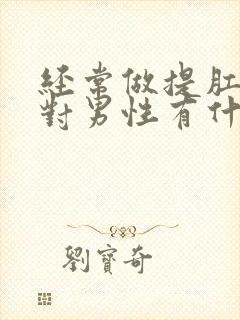 經常做提肛
對男性有什
劉寶奇